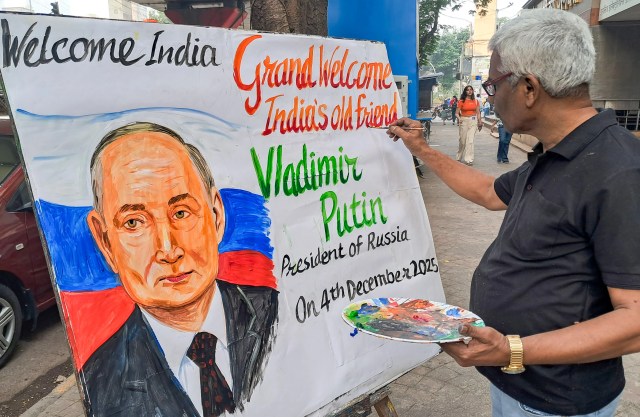 Welcome India
Grand Welcome
India's old friend
Vladimir
Putin
President of Russia
On 4th December 2025